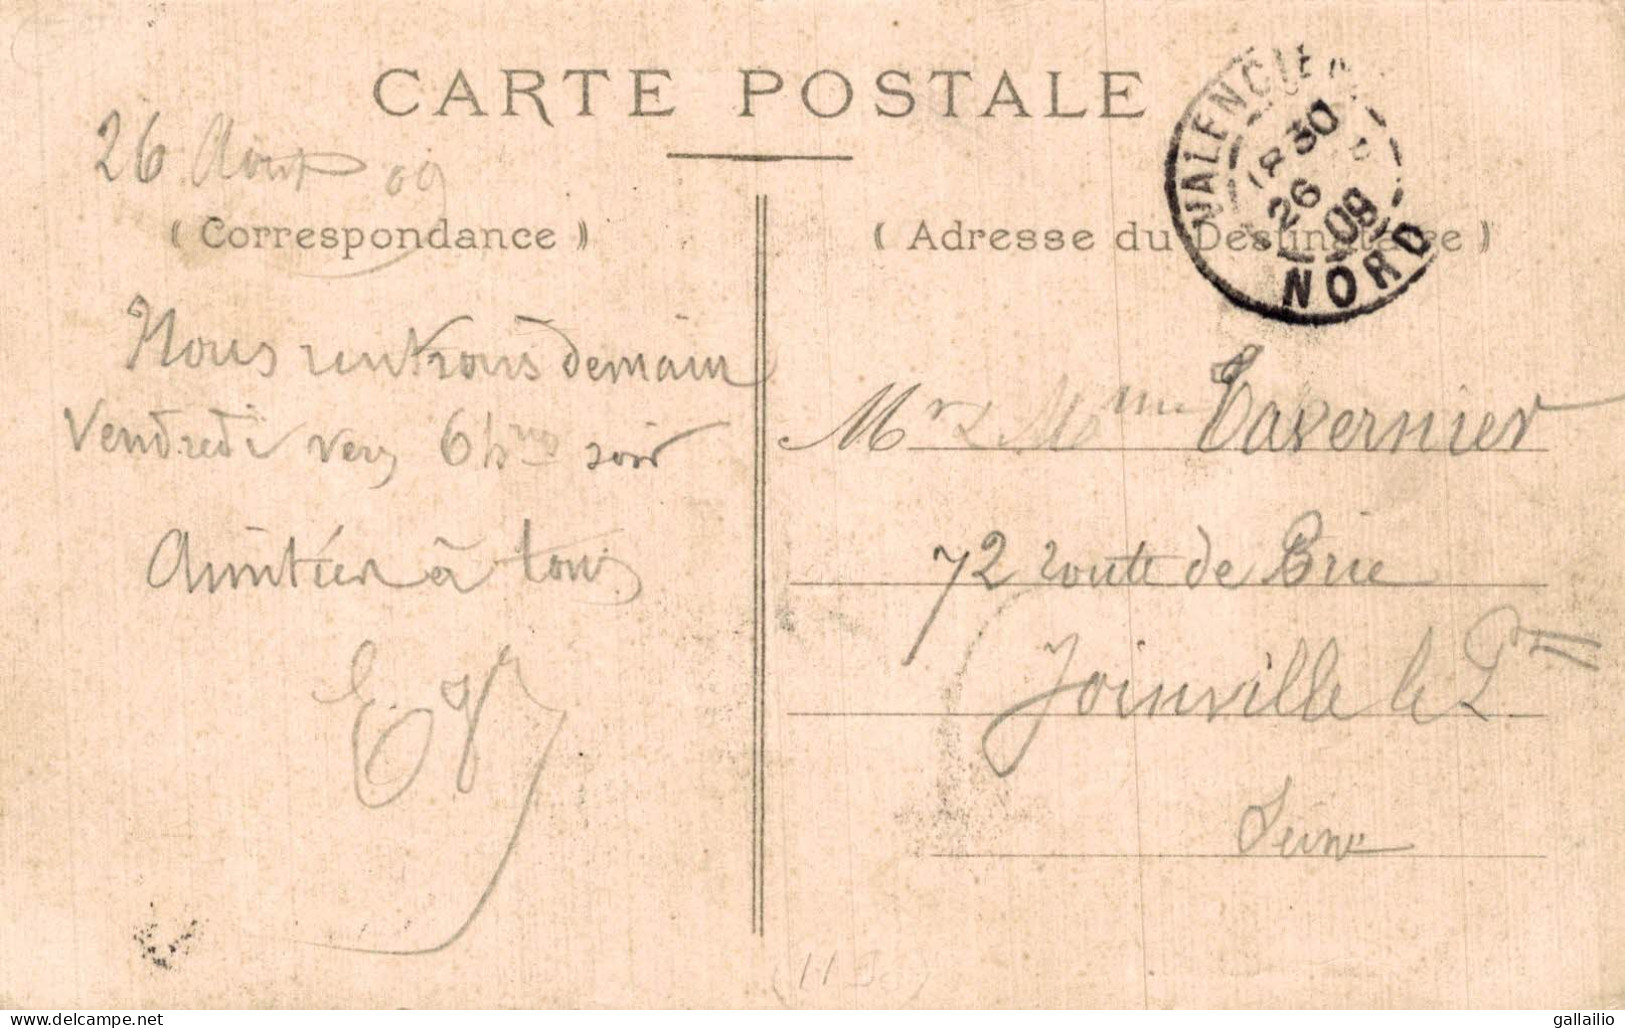 CARTE POSTALE
26 Aout 09
( Correspondance )
Nous rentrons demain
Vendredi vers 6 hres soir
Amitiés à tous
( Adresse du Destinataire )
VALENCIEN
30
26
09
NORD
Mr & Mme Tavernier
72 route de Brie
Joinville le Pt
Seine
delcampe.net
gallailio